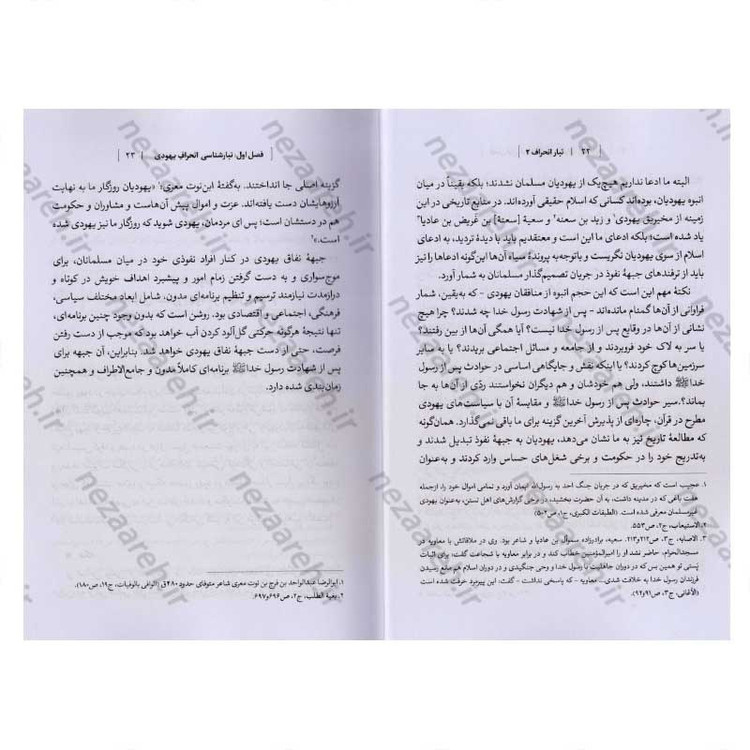 ۲۲ | تبار انحراف ۲
البته ما ادعا نداریم هیچ‌یک از یهودیان مسلمان نشدند؛ بلکه یقیناً در میان
انبوه یهودیان، بوده‌اند کسانی که اسلام حقیقی آورده‌اند. در منابع تاریخی در این
زمینه از مخیریق یهودی۱ و زید بن سعنه۲ و سعیة [سعنة] بن غریض بن عادیا۳
یاد شده است؛ بلکه ادعای ما این است و معتقدیم باید با دیدهٔ تردید، به ادعای
اسلام از سوی یهودیان نگریست و باتوجه‌به پروندهٔ سیاه آن‌ها این‌گونه ادعاها را نیز
باید از ترفندهای جبههٔ نفوذ در جریان تصمیم‌گذار مسلمانان به شمار آورد.
نکتهٔ مهم این است که این حجم انبوه از منافقان یهودی - که به‌یقین، شمار
فراوانی از آن‌ها گمنام مانده‌اند - پس از شهادت رسول خدا چه شدند؟ چرا هیچ
نشانی از آن‌ها در وقایع پس از رسول خدا نیست؟ آیا همگی آن‌ها از بین رفتند؟
یا سر به لاک خود فروبردند و از جامعه و مسائل اجتماعی بریدند؟ یا به سایر
سرزمین‌ها کوچ کردند؟ یا اینکه نقش و جایگاهی اساسی در حوادث پس از رسول
خداﷺ داشتند، ولی هم خودشان و هم دیگران نخواستند ردّی از آن‌ها به جا
بماند؟. سیر حوادث پس از رسول خداﷺ و مقایسهٔ آن با سیاست‌های یهودی
مطرح در قرآن، چاره‌ای از پذیرش آخرین گزینه برای ما باقی نمی‌گذارد. همان‌گونه
که مطالعهٔ تاریخ نیز به ما نشان می‌دهد، یهودیان به جبههٔ نفوذ تبدیل شدند و
به‌تدریج خود را در حکومت و برخی شغل‌های حساس وارد کردند و به‌عنوان
۱. عجیب است که مخیریق که در جریان جنگ احد به رسول‌الله ایمان آورد و تمامی اموال خود را، ازجمله
هفت باغی که در مدینه داشت، به آن حضرت بخشید، در برخی گزارش‌های اهل تسنن، به‌عنوان یهودی
غیرمسلمان معرفی شده است. (الطبقات الکبری، ج۱، ص۵۰۲)
۲. الاستیعاب، ج۲، ص۵۵۳.
۳. الاصابه، ج۳، ص۲۱۲و۲۱۳. سعیه، برادرزاده سموأل بن عادیا و شاعر بود. وی در ملاقاتش با معاویه در
مسجدالحرام، حاضر نشد او را امیرالمؤمنین خطاب کند و در برابر معاویه با شجاعت گفت: برای اثبات
پَستی تو همین بس که در دوران جاهلیت با رسول خدا و وحی جنگیدی و در دوران اسلام هم مانع رسیدن
فرزندان رسول خدا به خلافت شدی... معاویه - که پاسخی نداشت - گفت: این پیرمرد خرفت شده است.
(الأغانی، ج۳، ص۹۱و۹۲)
فصل اول: تبارشناسی انحراف یهودی | ۲۳
گزینه اصلی جا انداختند. به‌گفتهٔ ابن‌نوت معری:۱ «یهودیان روزگار ما به نهایت
آرزوهایشان دست یافته‌اند. عزت و اموال پیش آن‌هاست و مشاوران و حکومت
هم در دستشان است؛ پس ای مردمان، یهودی شوید که روزگار ما نیز یهودی شده
است.»۲
جبههٔ نفاق یهودی در کنار افراد نفوذی خود در میان مسلمانان، برای
موج‌سواری و به دست گرفتن زمام امور و پیشبرد اهداف خویش در کوتاه و
درازمدت نیازمند ترسیم و تنظیم برنامه‌ای مدون، شامل ابعاد مختلف سیاسی،
فرهنگی، اجتماعی و اقتصادی بود. روشن است که بدون وجود چنین برنامه‌ای،
تنها نتیجهٔ هرگونه حرکتی گل‌آلود کردن آب خواهد بود که موجب از دست رفتن
فرصت، حتی از دست جبههٔ نفاق یهودی خواهد شد. بنابراین، آن جبهه برای
پس از شهادت رسول خداﷺ برنامه‌ای کاملاً مدون و جامع‌الاطراف و همچنین
زمان‌بندی شده دارد.
۱. ابوالرضا عبدالواحد بن فرج بن نوت معری شاعر متوفای حدود ۴۸۰ق (الوافی بالوفیات، ج۱۹، ص۱۸۰).
۲. بغیة الطلب، ج۲، ص۶۹۶و۶۹۷.
nezaareh.ir